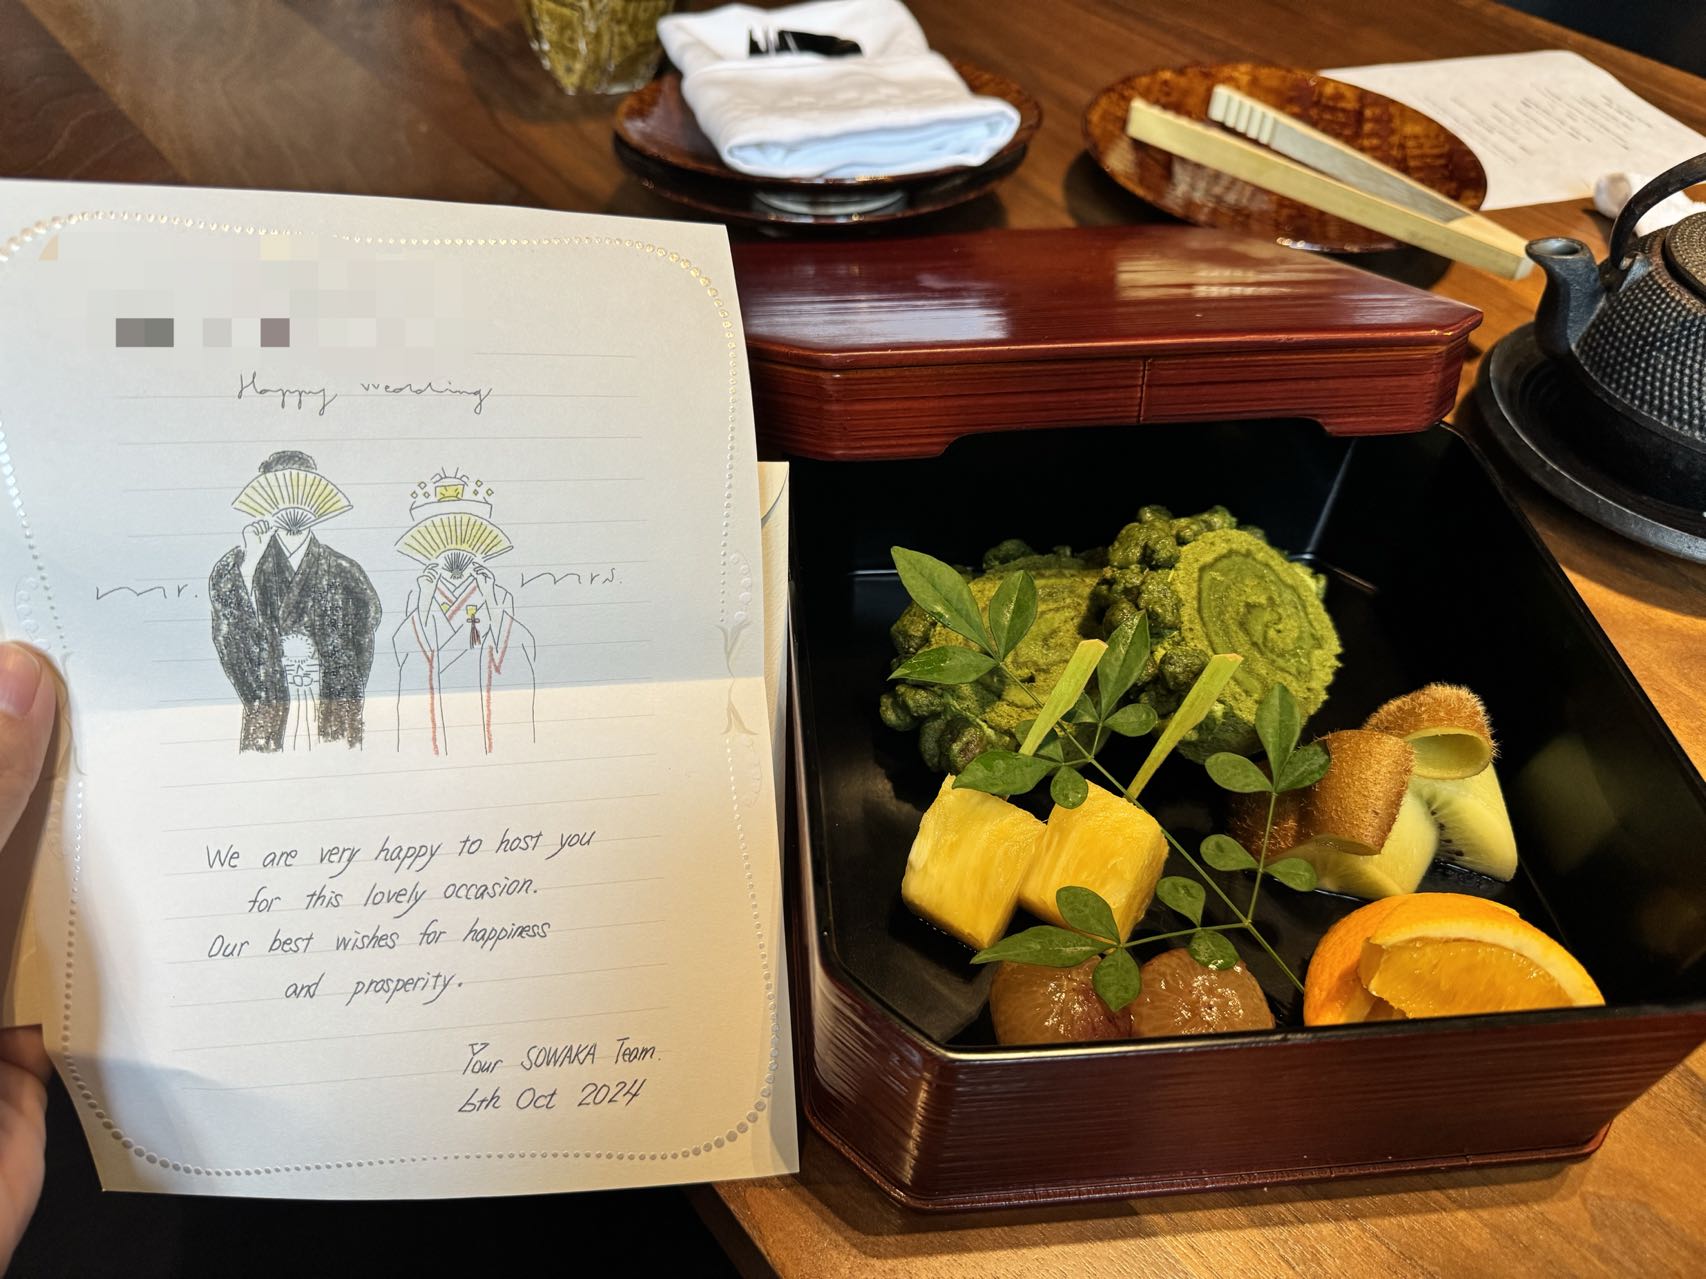 Happy wedding
mr.
mrs.
We are very happy to host you
for this lovely occasion.
Our best wishes for happiness
and prosperity.
Your SOWAKA Team.
6th Oct 2024